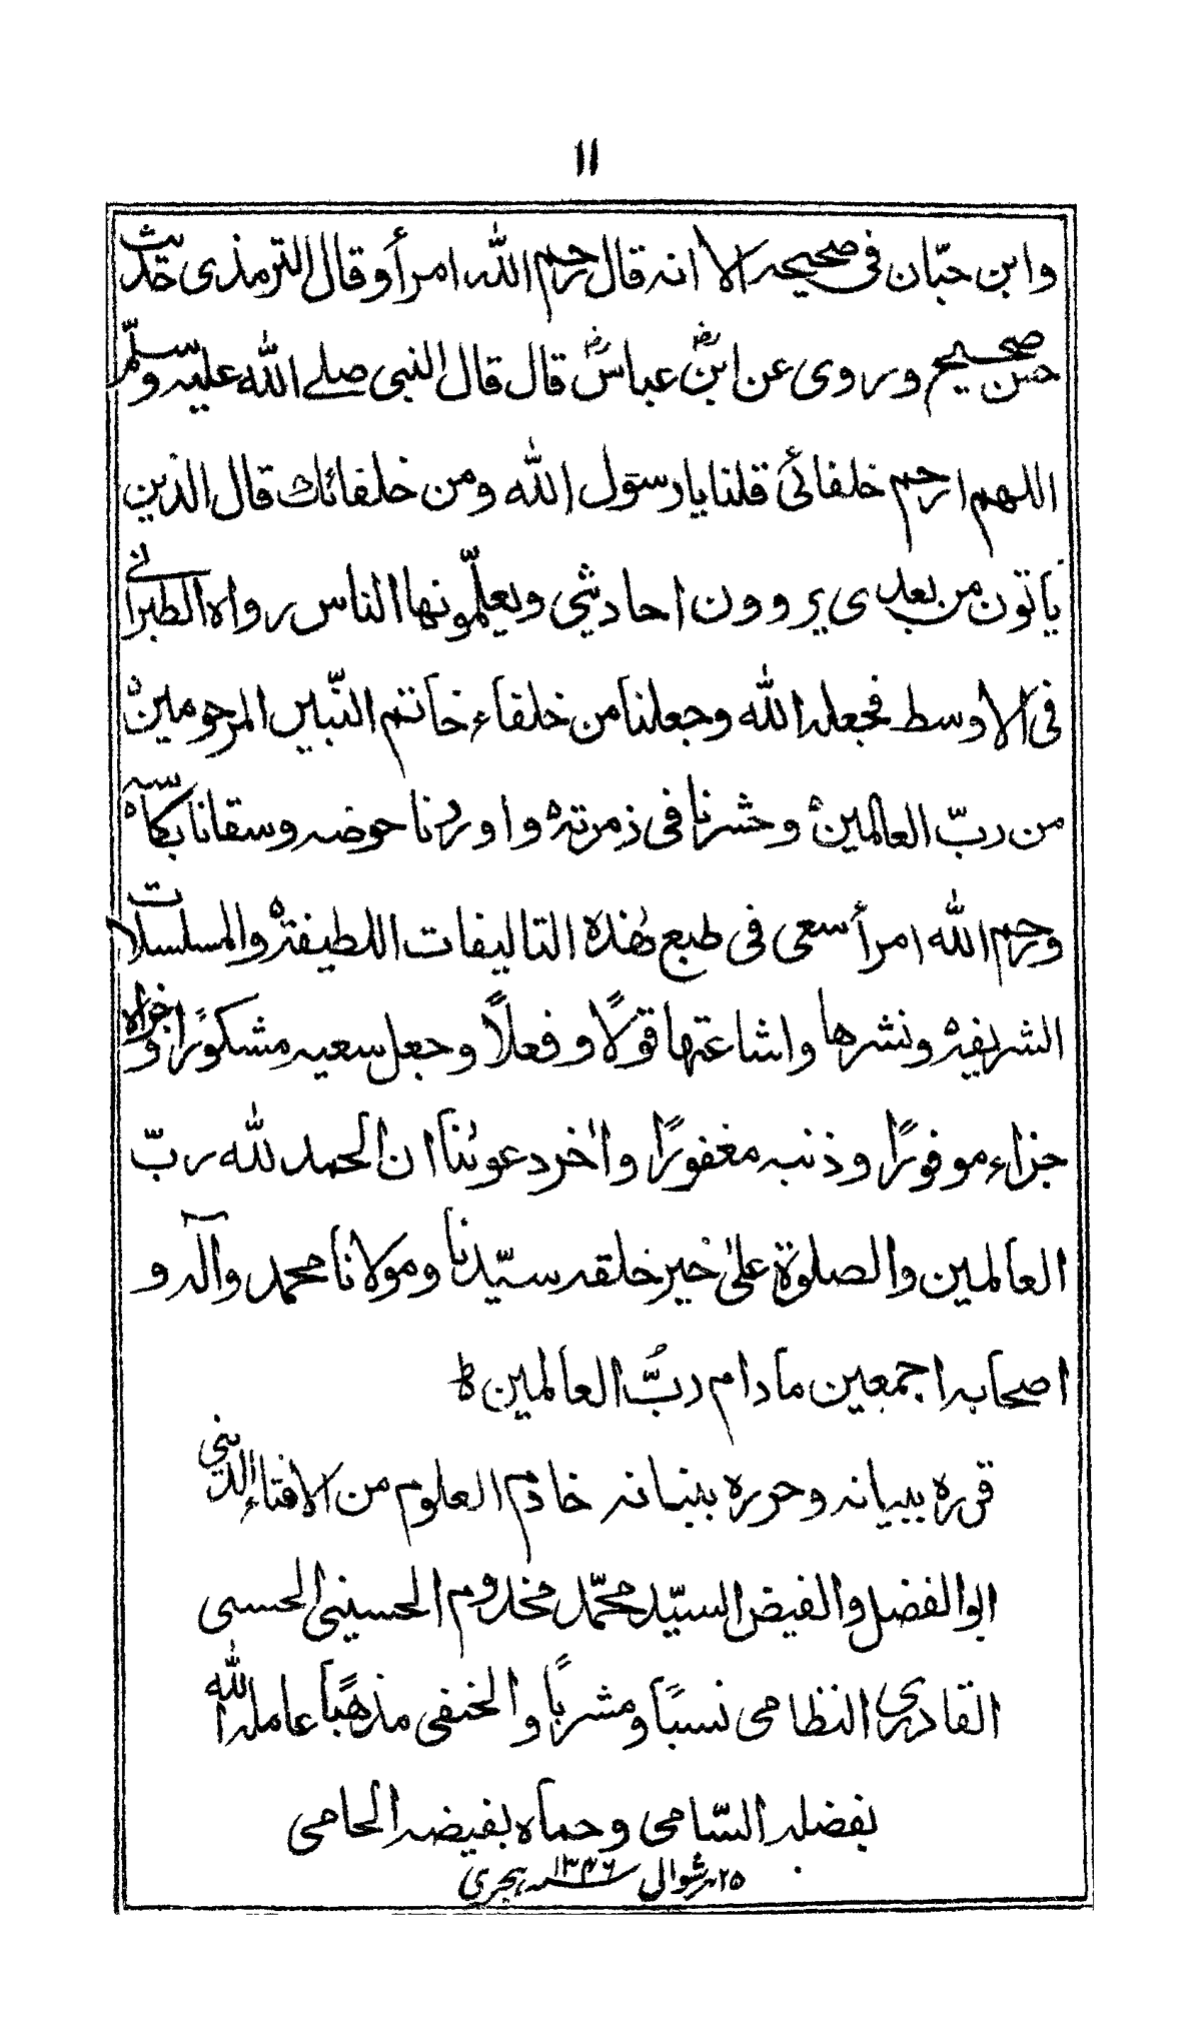 ١١
وابن حبّان فى صحيحه الا انه قال رحم الله امرأ وقال الترمذى حديث
حسن صحيح وروى عن ابنؓ عباسؓ قال قال النبى صلے الله عليه وسلّم
اللهم ارحم خلفائى قلنا يا رسول الله ومن خلفائك قال الذين
ياتون من بعدى يروون احاديثي ويعلّمونها الناس رواه الطبرانے
فى الاوسط فجعله الله وجعلنا من خلفاء خاتم النّبيين المرحومين
من ربّ العالمين وحشرنا فى زمرته واوردنا حوضه وسقانا بكأسه
ورحم الله امرأ سعى فى طبع هٰذه التاليفات اللطيفة والمسلسلات
الشريفة ونشرها واشاعتها قولًا وفعلًا وجعل سعيه مشكورًا وجزاه
جزاء موفورًا وذنبه مغفورًا واٰخر دعوٰنا ان الحمد لله ربّ
العالمين والصلوة علىٰ خير خلقه سيّدنا ومولانا محمد وآله و
اصحابه اجمعين مادام ربُّ العالمين ط
قرره ببيانه وحرره ببنانه خادم العلوم من الافتاء الدينى
ابو الفضل والفيض السيّد محمّد مخدوم الحسينى الحسنى
القادرى النظامى نسبًا ومشربًا والحنفى مذهبًا عامله الله
بفضله السّامى وحماه بفيضه الحامى
٢٥؍ شوال ١٣٣٦؁ هجرى